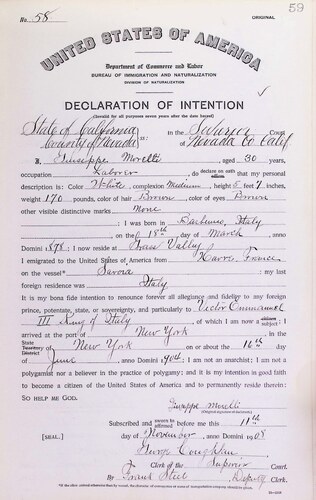 59
No. 58 ORIGINAL
UNITED STATES OF AMERICA
Department of Commerce and Labor
BUREAU OF IMMIGRATION AND NATURALIZATION
DIVISION OF NATURALIZATION
DECLARATION OF INTENTION
(Invalid for all purposes seven years after the date hereof)
State of California
County of Nevada ss: In the Superior Court of Nevada Co Calif
I, Giuseppe Morelli, aged 30 years,
occupation Laborer, do declare on oath affirm that my personal
description is: Color White, complexion Medium, height 5 feet 7 inches,
weight 170 pounds, color of hair Brown, color of eyes Brown
other visible distinctive marks None
; I was born in Italy
on the 18th day of March, anno
Domini 1878; I now reside at Grass Valley
I emigrated to the United States of America from Havre, France
on the vessel* Savoia; my last
foreign residence was Italy
It is my bona fide intention to renounce forever all allegiance and fidelity to any foreign
prince, potentate, state, or sovereignty, and particularly to Victor Emmanuel
III King of Italy, of which I am now a citizen subject; I
arrived at the port of New York, in the
State Territory District of New York on or about the 16th day
of June, anno Domini 1904; I am not an anarchist; I am not a
polygamist nor a believer in the practice of polygamy; and it is my intention in good faith
to become a citizen of the United States of America and to permanently reside therein:
SO HELP ME GOD.
Giuseppe Morelli
(Original signature of declarant.)
Subscribed and sworn to affirmed before me this 11th
[SEAL.] day of November, anno Domini 1908
George Coughlan
Clerk of the Superior Court.
By Frank Steel Deputy Clerk.